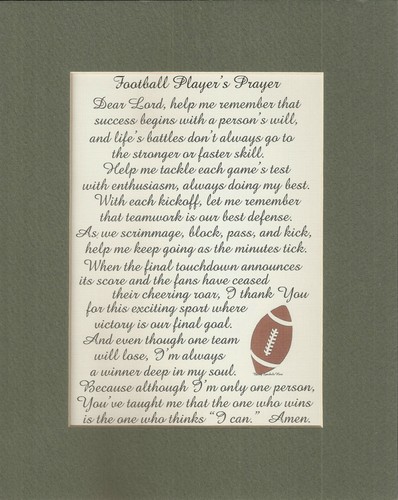 Football Player's Prayer
Dear Lord, help me remember that
success begins with a person's will,
and life's battles don't always go to
the stronger or faster skill.
Help me tackle each game's test
with enthusiasm, always doing my best.
With each kickoff, let me remember
that teamwork is our best defense.
As we scrimmage, block, pass, and kick,
help me keep going as the minutes tick.
When the final touchdown announces
its score and the fans have ceased
their cheering roar, I thank You
for this exciting sport where
victory is our final goal.
And even though one team
will lose, I'm always
a winner deep in my soul.
Because although I'm only one person,
You've taught me that the one who wins
is the one who thinks "I can." Amen.